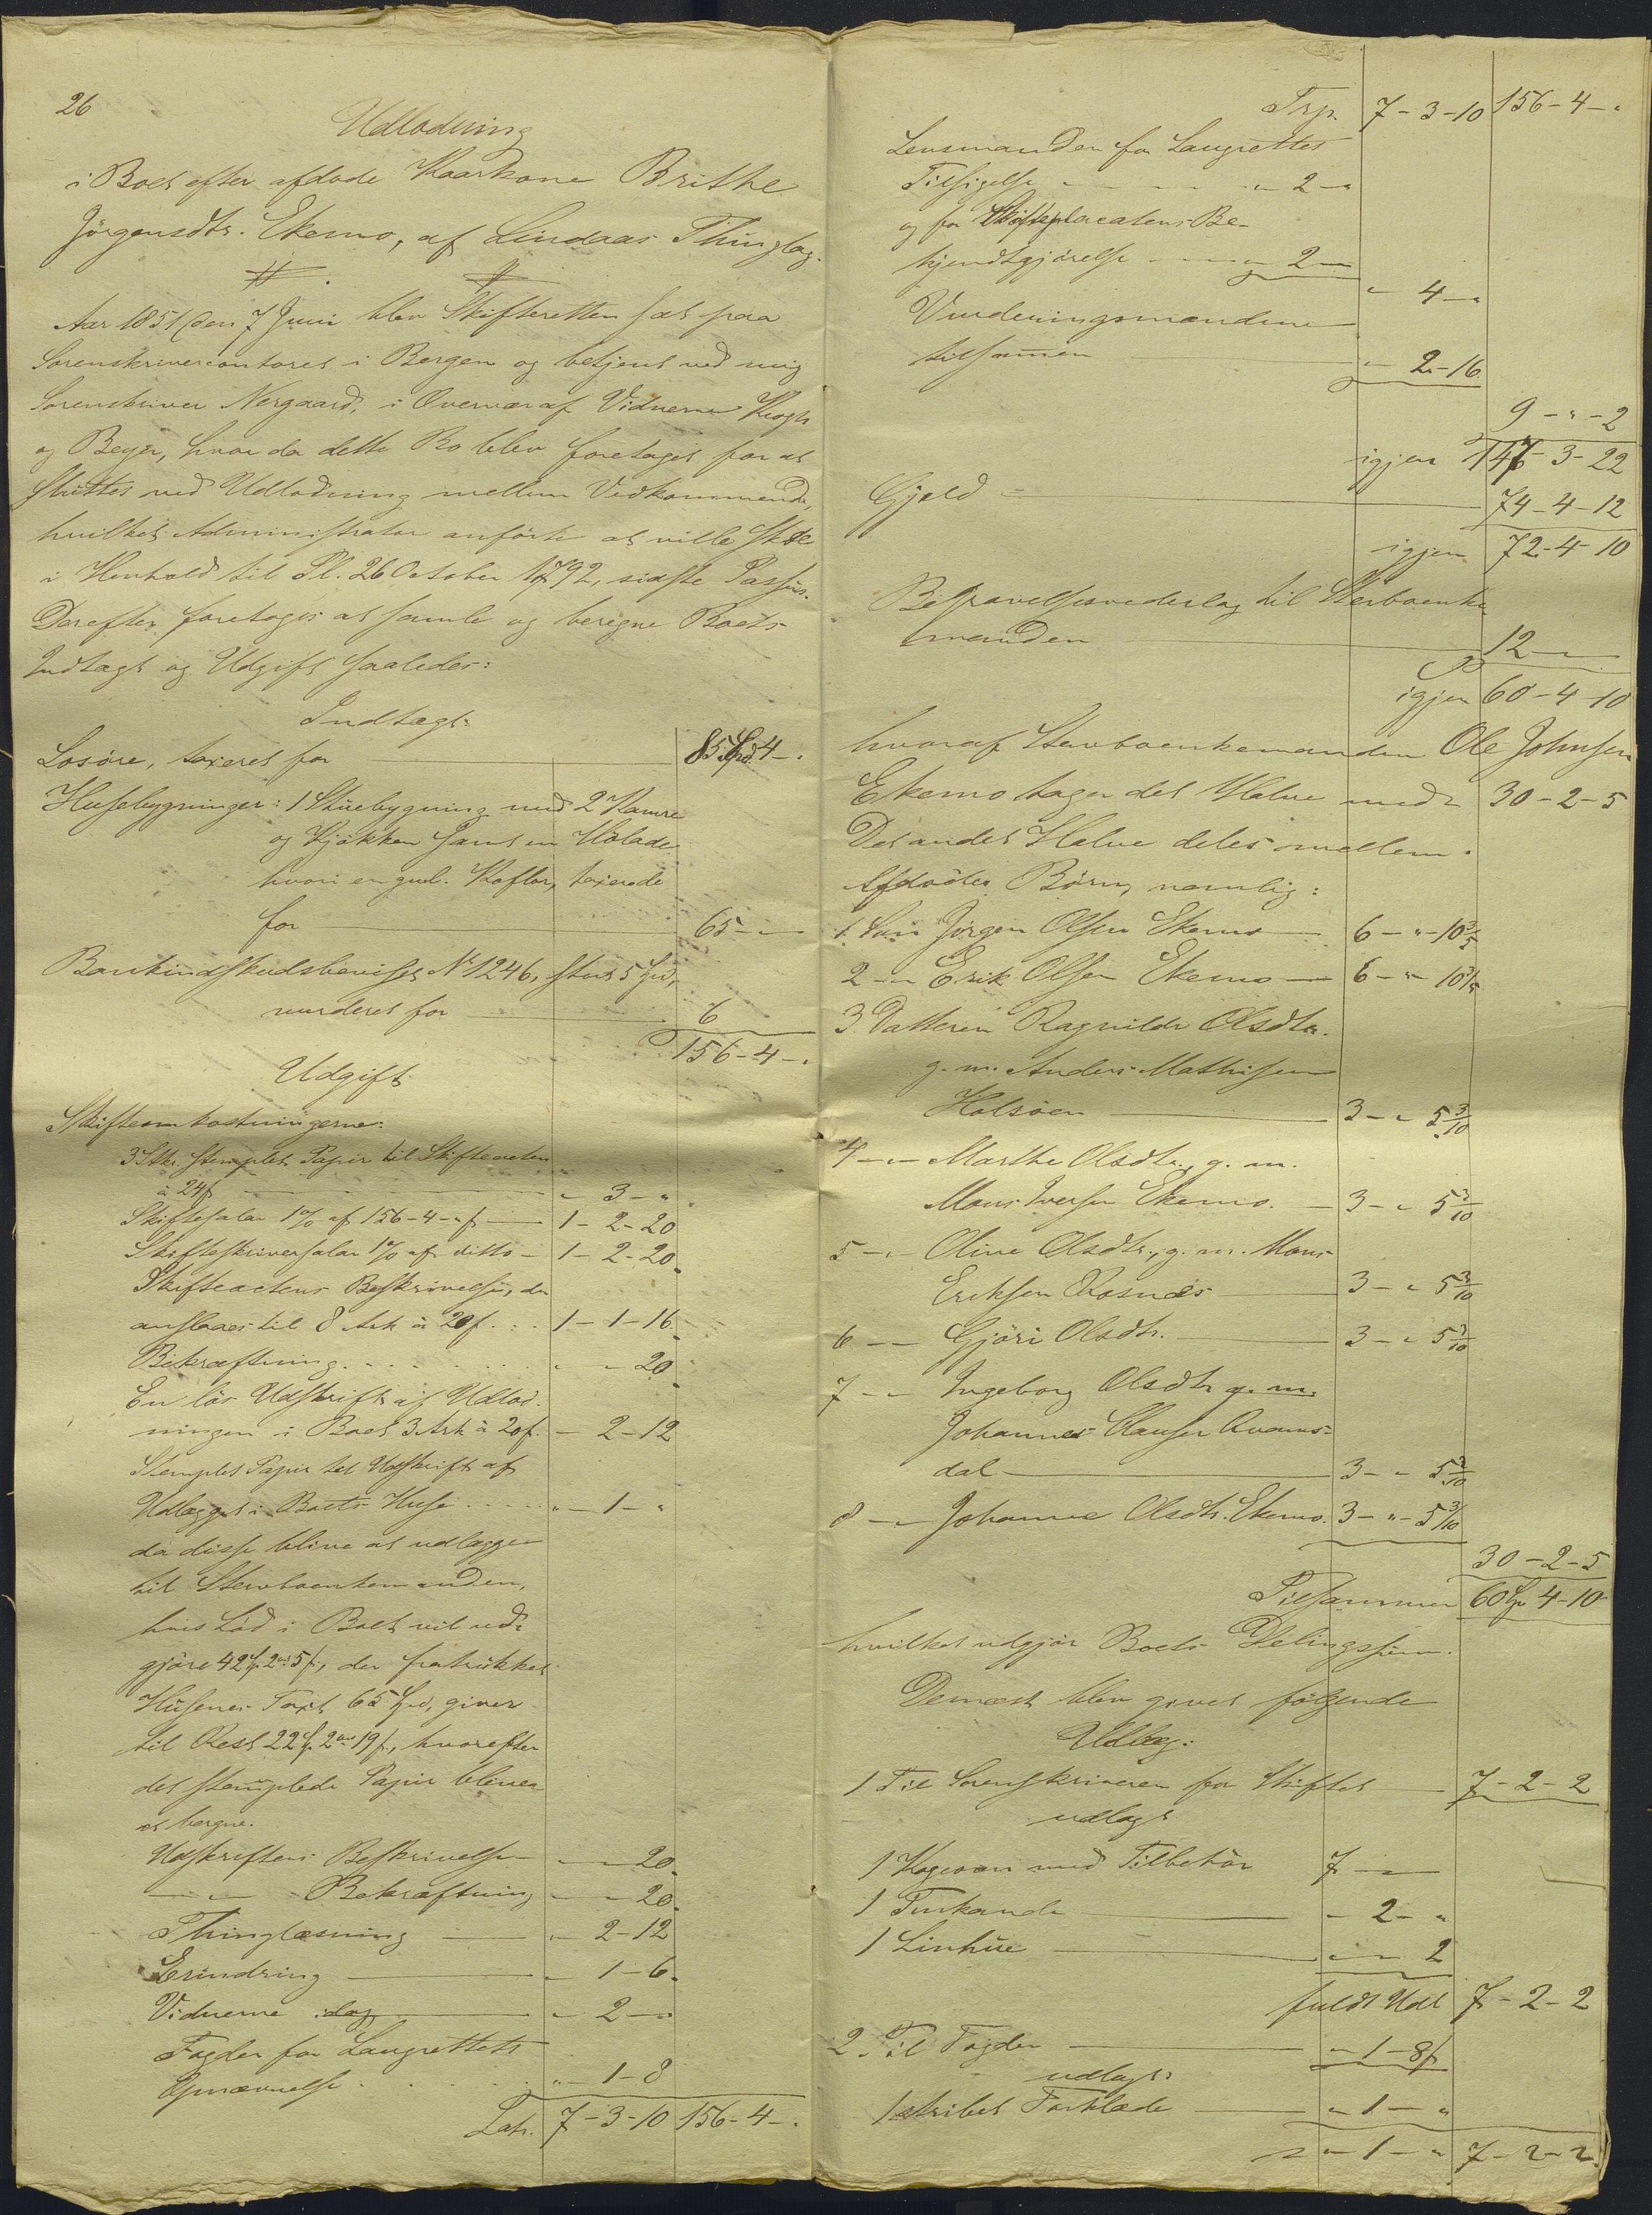 26
Udlodning
i Boet efter afdøde Kaarkone Brithe
Jörgensdtr. Ekemo, af Lindaas Thinglag.
Aar 1851 den 7 Juni blev Skifteretten sat paa
Sorenskrivercontoret i Bergen og betjent ved mig
Sorenskriver Nergaard, i Overvær af Vidnerne Krogh
og Beyer, hvor da dette Bo blev foretaget for at
sluttes ved Udlodning mellem Vedkommende,
hvilket Administrator anførte at ville skee
i Henhold til Pl. 26 October 1792, sidste Passus.
Derefter foretoges at samle og beregne Boets
Indtægt og Udgift saaledes:
Indtægt:
Løsøre, taxeret for 85 Spd. 4 - "
Husebygninger: 1 Stuebygning med 2 Kamre
og Kjøkken samt en Hølade
hvori en gml. Koflor, taxerede
for 65 - "
Bankindskudsbeviset No 1246, stort 5 Spd,
vurderet for 6
156 - 4 - "
Udgift
Skifteomkostningerne:
3 Stkr. stemplet Papir til Skifteacten
à 24 s " - 3 - "
Skiftesalar 1% af 156 - 4 - " s 1 - 2 - 20
Skifteskriversalar 1% af ditto - 1 - 2 - 20
Skifteactens Beskrivelse, der
anslaaes til 8 Ark à 20 s. 1 - 1 - 16
Bekræftning " - " - 20
En løs Udskrift af Udlod-
ningen i Boet 3 Ark à 20 s. - 2 - 12
Stemplet Papir til Udskrift af
Udlægget i Boets Huse " - 1 - "
da disse blive at udlægge
til Stervboenkemanden,
hvis Lod i Boet vil ud-
gjøre 42 Sp. 2 ort 5 s, der fratrukket
Husenes Taxt 65 Spd, giver
til Rest 22 Sp. 2 ort 19 s, hvorefter
det stemplede Papir bliver
at beregne.
Udskriftens Beskrivelse " - " 20
- " - Bekræftning " - " 20
Thinglæsning " - 2 - 12
Erindring " - 1 - 6
Vidnerne idag " - 2 - "
Fogden for Laugrettets
Opnævnelse " - 1 - 8
Lats. 7 - 3 - 10 156 - 4 - "
Trp. 7 - 3 - 10 156 - 4 - "
Lensmanden for Laugrettets
Tilsigelse " 2 - "
og for Skifteplacatens Be-
kjendtgjørelse " 2 - "
" 4 - "
Vurderingsmændene
tilsammen " 2 - 16
9 - " - 2
igjen 147 - 3 - 22
Gjeld 74 - 4 - 12
igjen 72 - 4 - 10
Begravelsesvederlag til Stervboenke
manden 12 - "
igjen 60 - 4 - 10
hvoraf Stervboenkemanden Ole Johnsen
Ekemo tager det Halve med 30 - 2 - 5
Det andet Halve deles mellem
Afdødes Børn, nemlig:
1 Søn Jörgen Olsen Ekemo 6 - " - 10 3/5
2 - " Erik Olsen Ekemo 6 - " - 10 3/5
3 Datteren Ragnilde Olsdtr.
g. m. Anders Mathisen
Holsøen 3 - " 5 3/10
4 - " - Marthe Olsdtr, g. m.
Mons Iversen Ekemo. 3 - " 5 3/10
5 - " - Oline Olsdtr., g. m. Mons
Eriksen Rosnæs 3 - " 5 3/10
6 - " Gjøri Olsdtr. 3 - " 5 3/10
7 - " Ingeborg Olsdtr g. m.
Johannes Clausen Qvams-
dal 3 - " 5 3/10
8 - " Johanne Olsdtr. Ekemo. 3 - " - 5 3/10
30 - 2 - 5
Tilsammen 60 Sp. 4 - 10
hvilket udgjør Boets Delingssum.
Dernæst blev givet følgende
Udlæg:
1 Til Sorenskriveren for Skiftet 7 - 2 - 2
udlagt
1 Kogeovn med Tilbehør 7 - "
1 Tinkande - 2 - "
1 Linhue " - " 2
fuldt Udl 7 - 2 - 2
2 Til Fogden " - 1 - 8 s
udlagt:
1 stribet Forklæde " - 1 - "
" - 1 - " 7 - 2 - 2